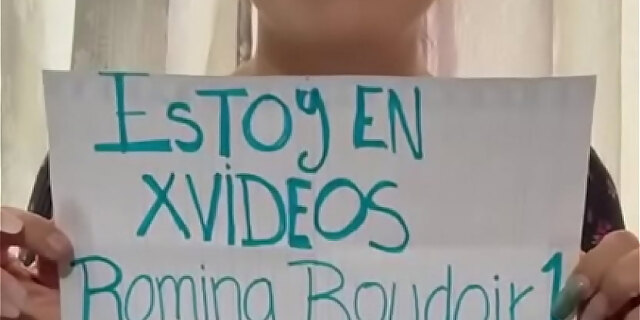 ESTOY EN
XVIDEOS
Romina Boudoir 1